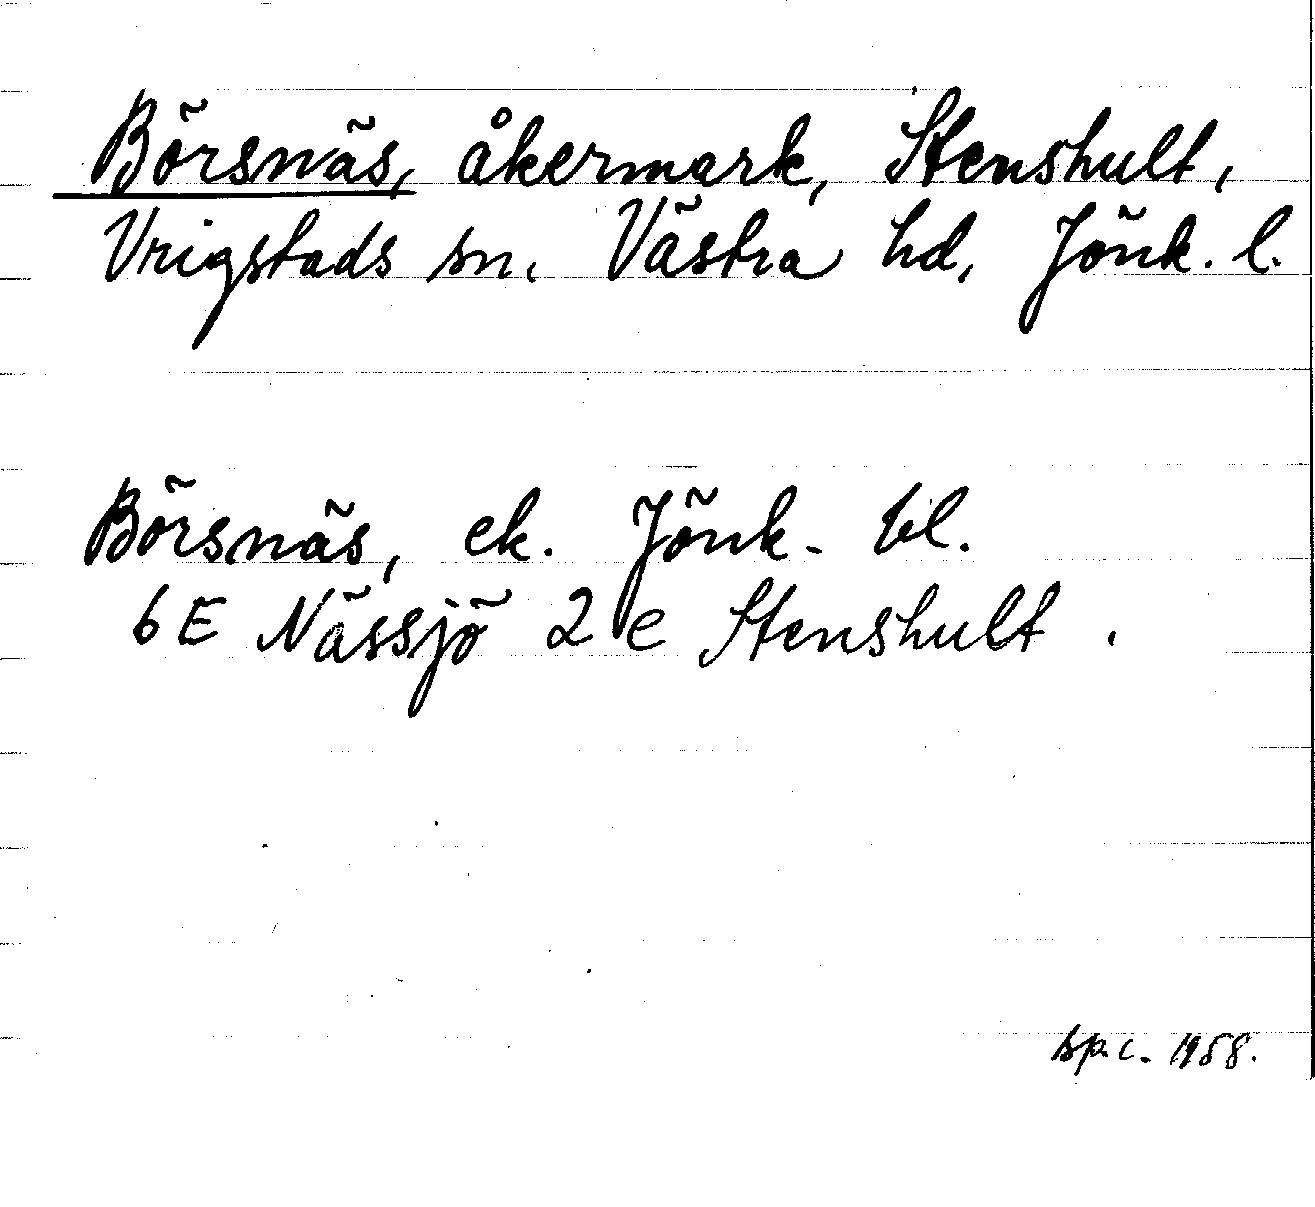 Börsnäs, åkermark, Stenshult,
Vrigstads sn. Västra hd, Jönk. l.
Börsnäs, ek. Jönk. bl.
6 E Nässjö 2 e Stenshult.
sp. c. 1958.